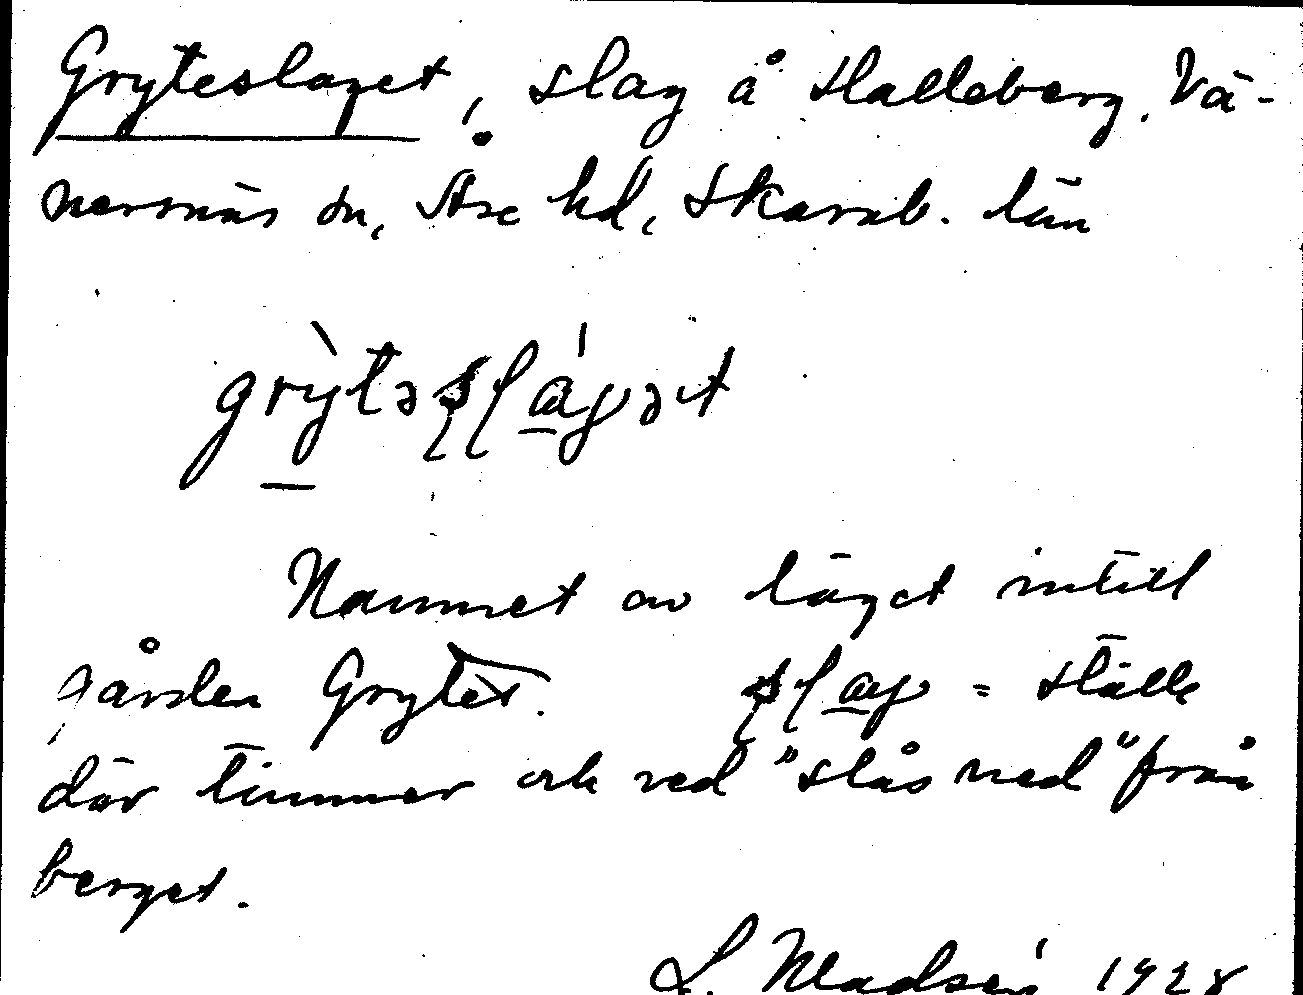 Gryteslaget, slag å Halleberg. Vä-
nersnäs sn, Åse hd, Skarab. län
grỳtəsláɡət
Namnet av läget intill
gården Grytet. slag = ställe
där timmer och ved "slås ned" från
berget.
L. Madsén 1928